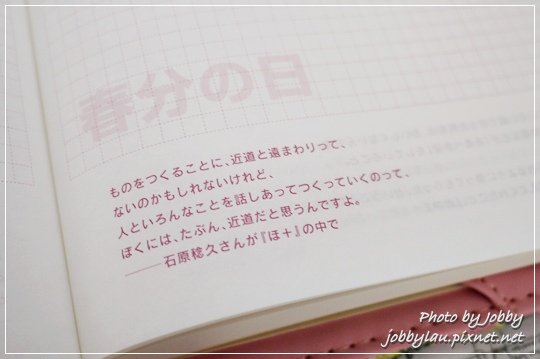 春分の日
ものをつくることに、近道と遠まわりって、
ないのかもしれないけれど、
人といろんなことを話しあってつくっていくのって、
ぼくには、たぶん、近道だと思うんですよ。
──石原稔久さんが『ほ＋』の中で
Photo by Jobby
jobbylau.pixnet.net